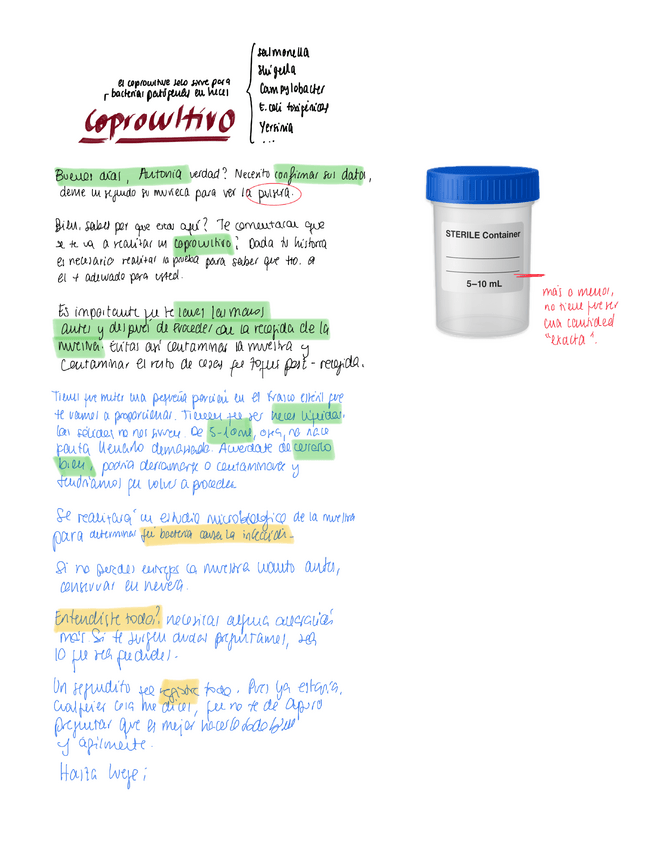 el coprocultivo solo sirve para
bacterias patógenas en heces
coprocultivo
Salmonella
Shigella
Campylobacter
E. coli toxigénicas
Yersinia
...
Buenos días, Antonia verdad? Necesito confirmar sus datos,
deme un segundo su muñeca para ver la pulsera.
Bien, sabes por que estas aquí? Te comentaron que
se te va a realizar un coprocultivo? Dada tu historia
es necesario realizar la prueba para saber que tto. es
el + adecuado para usted.
Es importante que te laves las manos
antes y después de proceder con la recogida de la
muestra. Evitas así contaminar la muestra y
contaminar el resto de cosas que toques post-recogida.
Tienes que meter una pequeña porción en el frasco estéril que
te vamos a proporcionar. Tienen que ser heces líquidas.
Las sólidas no nos sirven. De 5-10ml, osea, no hace
falta llenarlo demasiado. Acuérdate de cerrarlo
bien, podría derramarse o contaminarse y
tendríamos que volver a proceder
Se realizará un estudio microbiológico de la muestra
para determinar qué bacteria causa la infección.
Si no puedes entregar la muestra cuanto antes,
conservar en nevera.
Entendiste todo? necesitas alguna
más. Si te surgen dudas pregúntame, sea
lo que sea
Un segundito que registre todo. Pues ya estaría,
cualquier cosa me dices, que no te de apuro
preguntar que es mejor hacerlo todo bien
y ágilmente.
Hasta luego
STERILE Container
5–10 mL
más o menos,
no tiene que ser
una cantidad
"exacta".